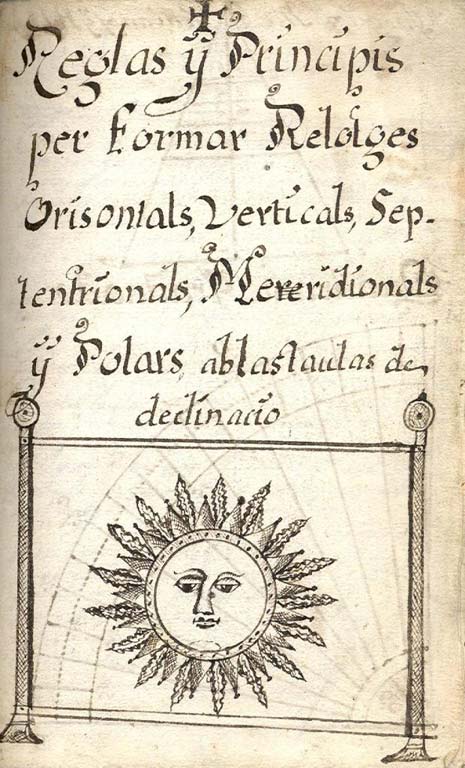 Reglas ÿ Principis
per formar Relotges
Orisontals, Verticals, Sep-
tentrionals, Mereridionals
ÿ Polars, ab las taulas de
declinacio